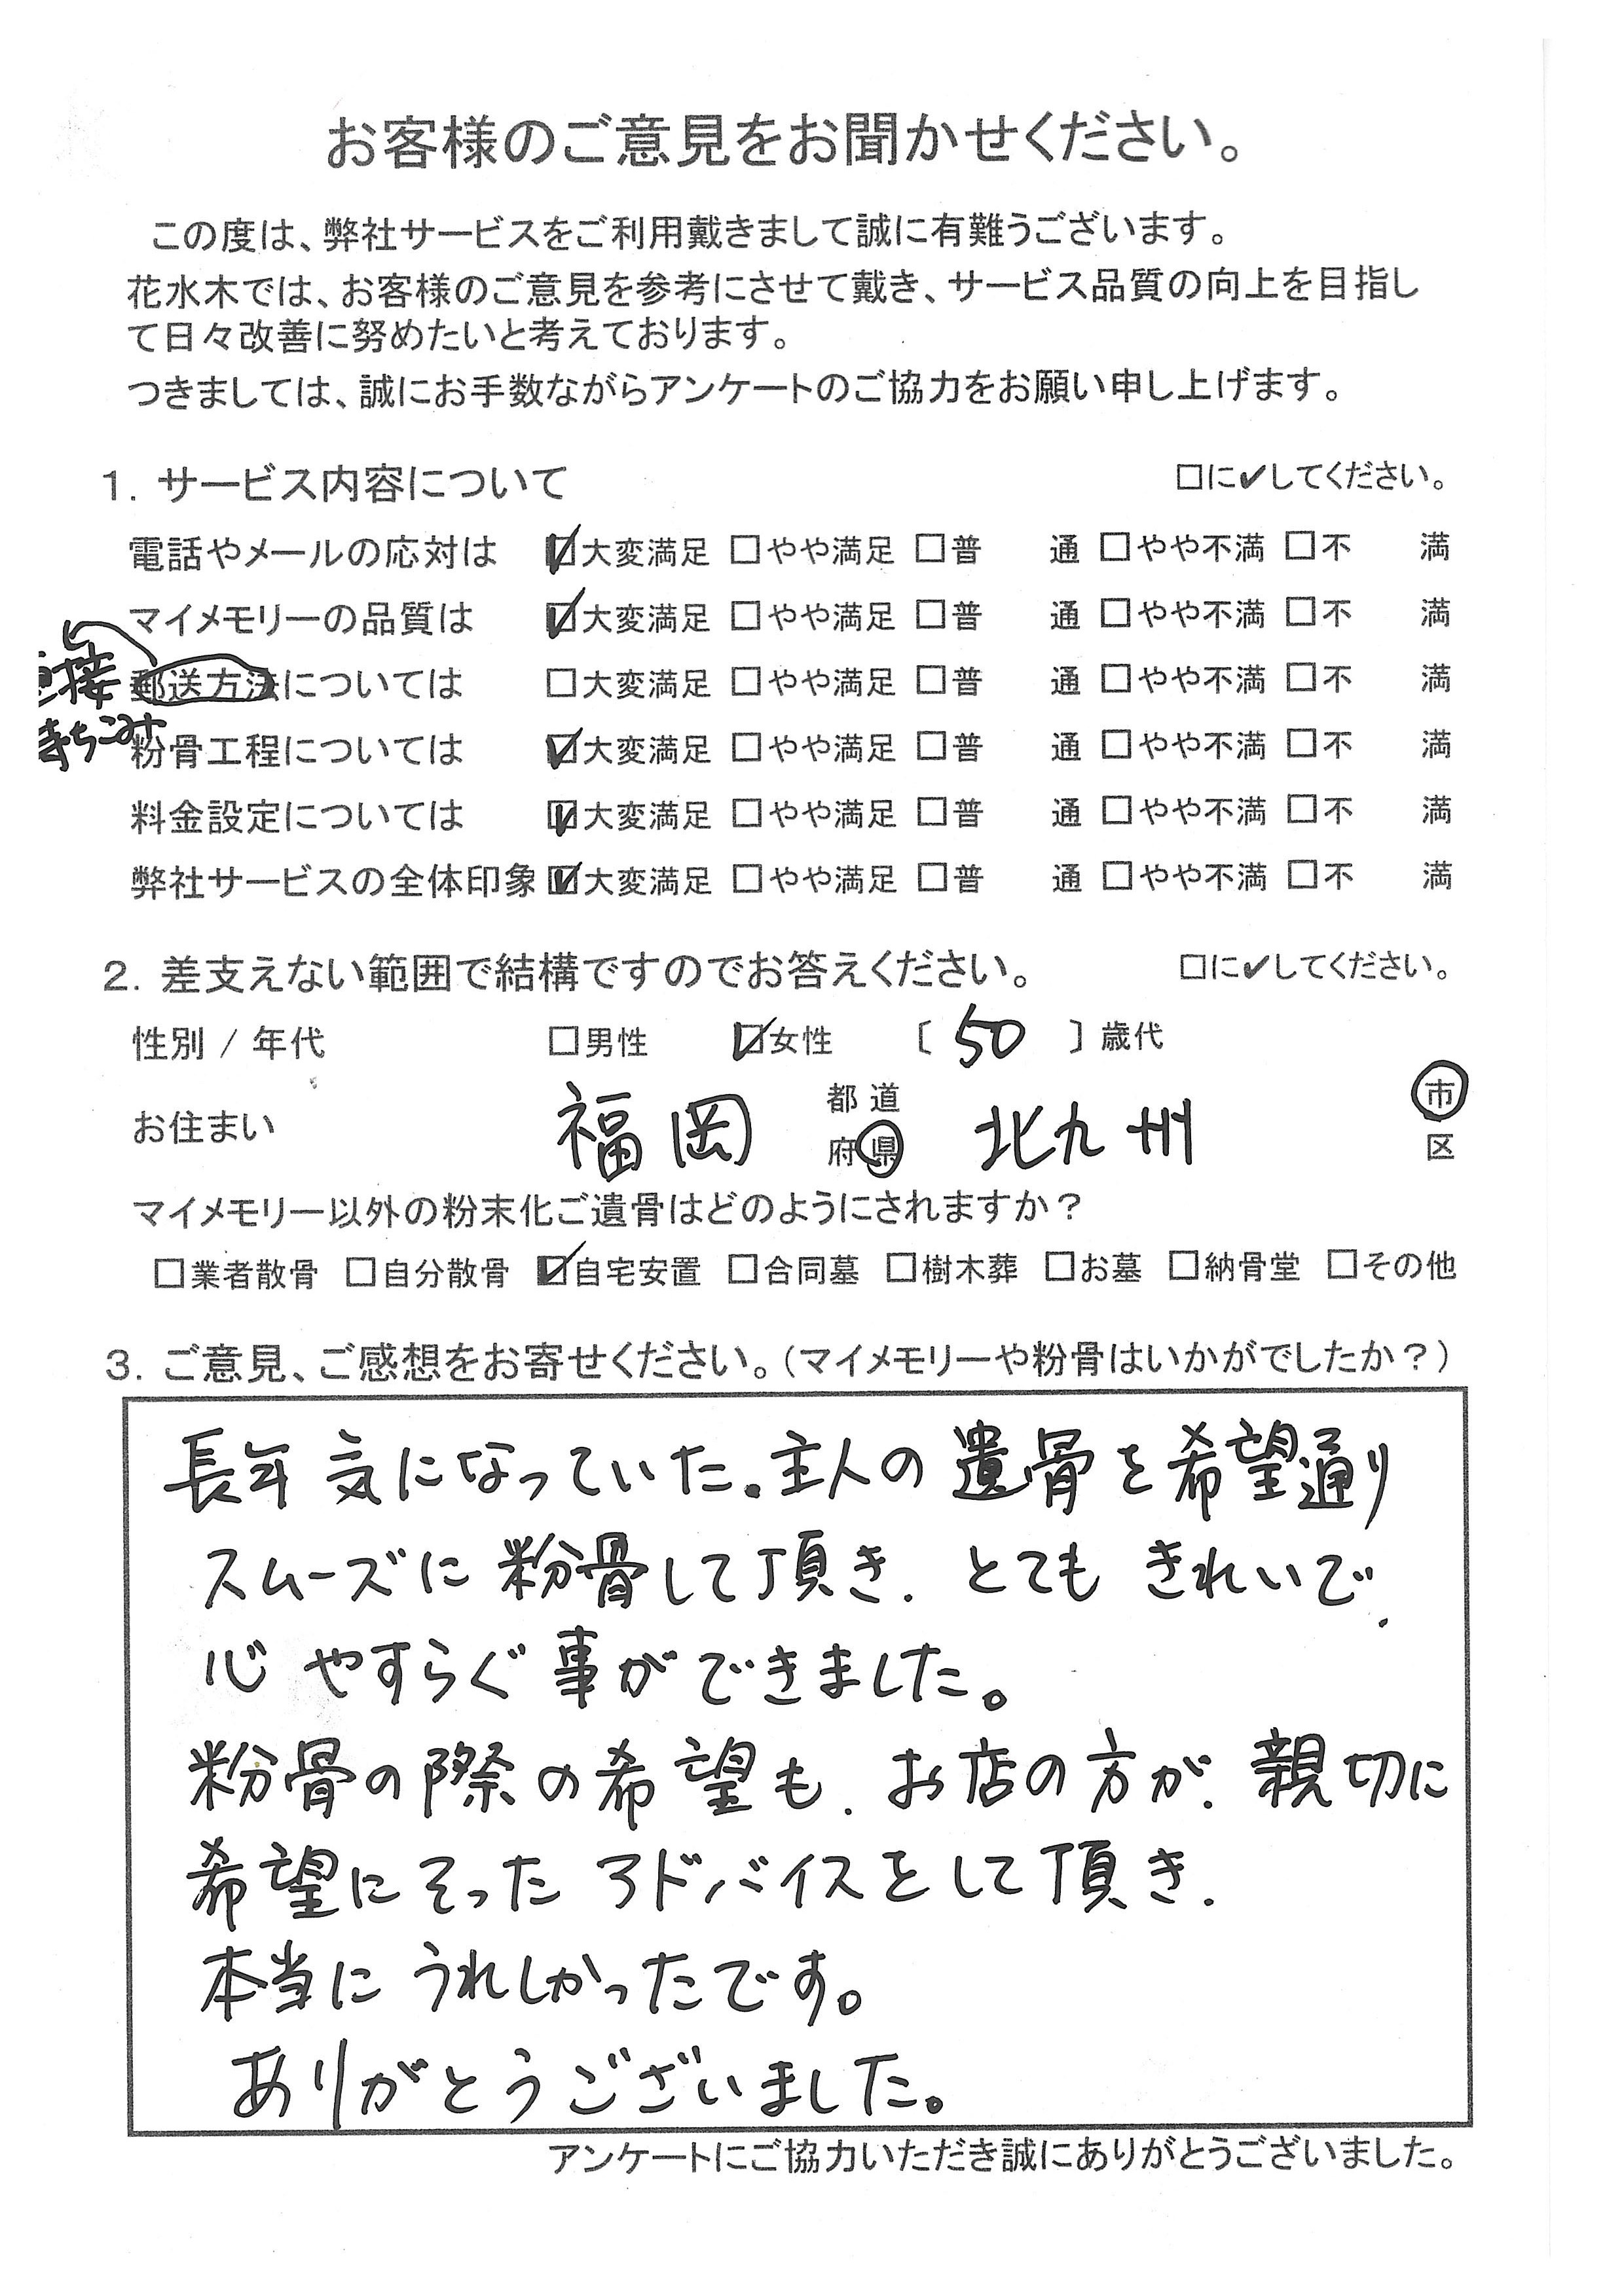 お客様のご意見をお聞かせください。
この度は、弊社サービスをご利用戴きまして誠に有難うございます。
花水木では、お客様のご意見を参考にさせて戴き、サービス品質の向上を目指し
て日々改善に努めたいと考えております。
つきましては、誠にお手数ながらアンケートのご協力をお願い申し上げます。
1. サービス内容について □に✔してください。
電話やメールの応対は ☑大変満足 □やや満足 □普 通 □やや不満 □不 満
マイメモリーの品質は ☑大変満足 □やや満足 □普 通 □やや不満 □不 満
郵送方法については □大変満足 □やや満足 □普 通 □やや不満 □不 満
直接
持ちこみ
粉骨工程については ☑大変満足 □やや満足 □普 通 □やや不満 □不 満
料金設定については ☑大変満足 □やや満足 □普 通 □やや不満 □不 満
弊社サービスの全体印象 ☑大変満足 □やや満足 □普 通 □やや不満 □不 満
2. 差支えない範囲で結構ですのでお答えください。 □に✔してください。
性別 / 年代 □男性 ☑女性 〔 50 〕歳代
お住まい 福岡 都道府県 北九州 市区
マイメモリー以外の粉末化ご遺骨はどのようにされますか？
□業者散骨 □自分散骨 ☑自宅安置 □合同墓 □樹木葬 □お墓 □納骨堂 □その他
3. ご意見、ご感想をお寄せください。（マイメモリーや粉骨はいかがでしたか？）
長年気になっていた.主人の遺骨を希望通り
スムーズに粉骨して頂き. とてもきれいで.
心やすらぐ事ができました。
粉骨の際の希望も. お店の方が. 親切に
希望にそったアドバイスをして頂き.
本当にうれしかったです。
ありがとうございました。
アンケートにご協力いただき誠にありがとうございました。